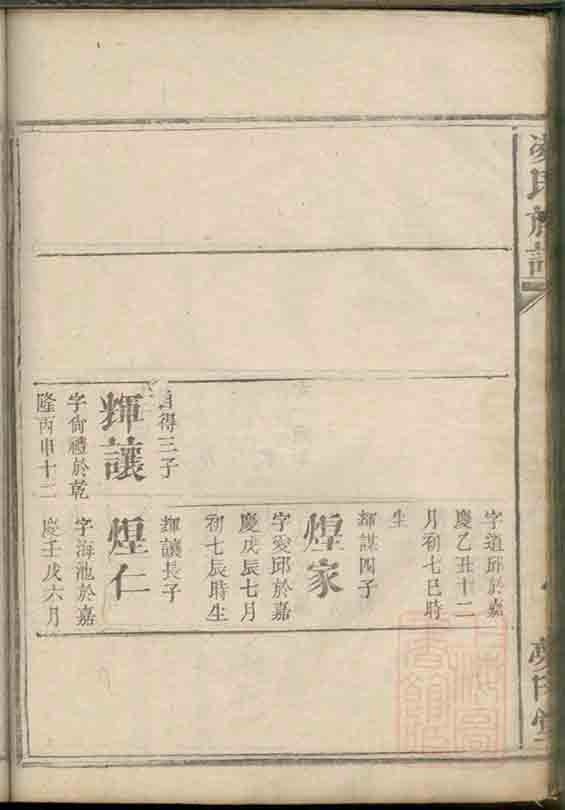 凌氏族譜
字道邱於嘉
慶乙丑十二
月初七巳時
生
輝謀四子
煌家
字愛邱於嘉
慶戊辰七月
初七辰時生
得三子
輝讓
字尙禮於乾
隆丙申十二
輝讓長子
煌仁
字海池於嘉
慶壬戌六月